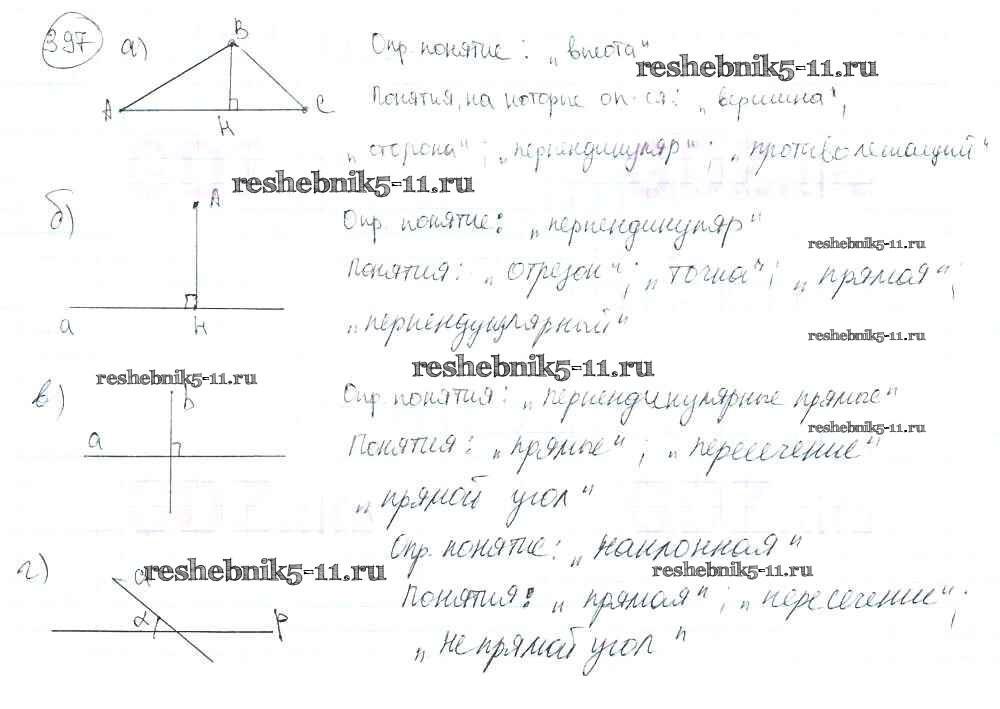 397 а) B
Опр. понятие: „высота“
reshebnik5-11.ru
A H C
Понятия, на которые оп-ся: „вершина“,
„сторона“; „перпендикуляр“; „противолежащий“
reshebnik5-11.ru
б) A
Опр. понятие: „перпендикуляр“
reshebnik5-11.ru
Понятия: „отрезок“; „точка“; „прямая“;
a H
„перпендикулярный“
reshebnik5-11.ru
reshebnik5-11.ru
reshebnik5-11.ru
в) b
Опр. понятия: „перпендикулярные прямые“
reshebnik5-11.ru
a
Понятия: „прямые“; „пересечение“
„прямой угол“
Опр. понятие: „наклонная“
г) a
reshebnik5-11.ru
reshebnik5-11.ru
Понятия: „прямая“; „пересечение“;
α P
„не прямой угол“